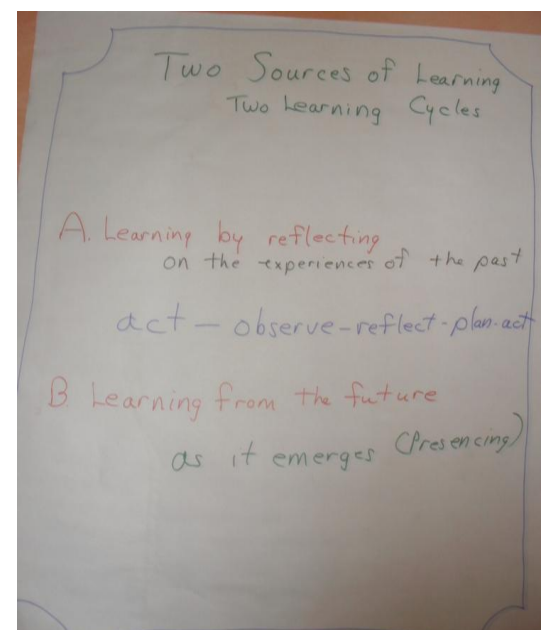 Two Sources of Learning
Two Learning Cycles
A. Learning by reflecting
on the experiences of the past
act – observe – reflect - plan - act
B Learning from the future
as it emerges (Presencing)